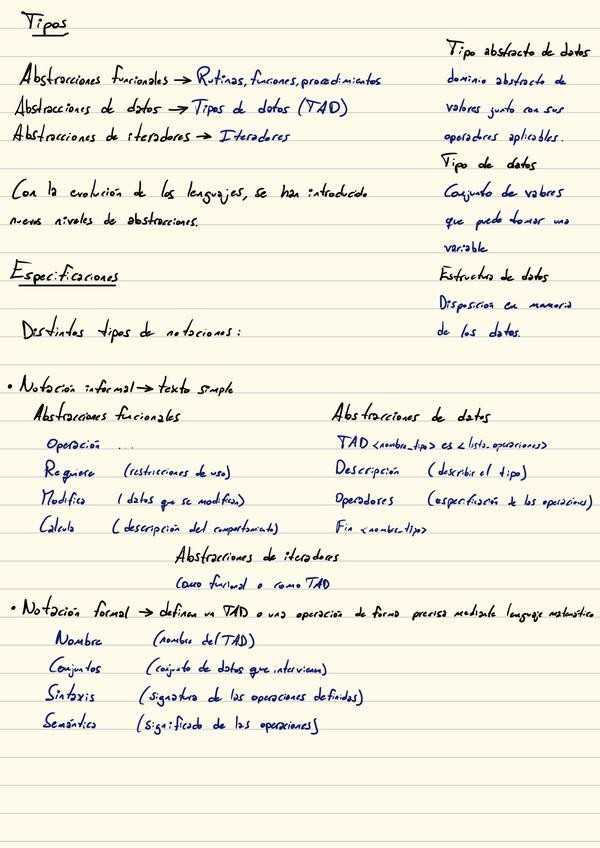 Tipos
Abstracciones funcionales → Rutinas, funciones, procedimientos
Abstracciones de datos → Tipos de datos (TAD)
Abstracciones de iteradores → Iteradores
Con la evolución de los lenguajes, se han introducido
nuevos niveles de abstracciones.
Tipo abstracto de datos
dominio abstracto de
valores junto con sus
operadores aplicables.
Tipo de datos
Conjunto de valores
que puede tomar una
variable
Estructura de datos
Disposición en memoria
de los datos.
Especificaciones
Distintos tipos de notaciones:
• Notación informal → texto simple
Abstracciones funcionales
Operación ...
Requiere (restricciones de uso)
Modifica (datos que se modifican)
Calcula (descripción del comportamiento)
Abstracciones de datos
TAD <nombre_tipo> es <lista_operaciones>
Descripción (describir el tipo)
Operadores (especificación de las operaciones)
Fin <nombre_tipo>
Abstracciones de iteradores
Como funcional o como TAD
• Notación formal → definen un TAD o una operación de forma precisa mediante lenguaje matemático
Nombre (nombre del TAD)
Conjuntos (conjunto de datos que intervienen)
Sintaxis (signatura de las operaciones definidas)
Semántica (significado de las operaciones)